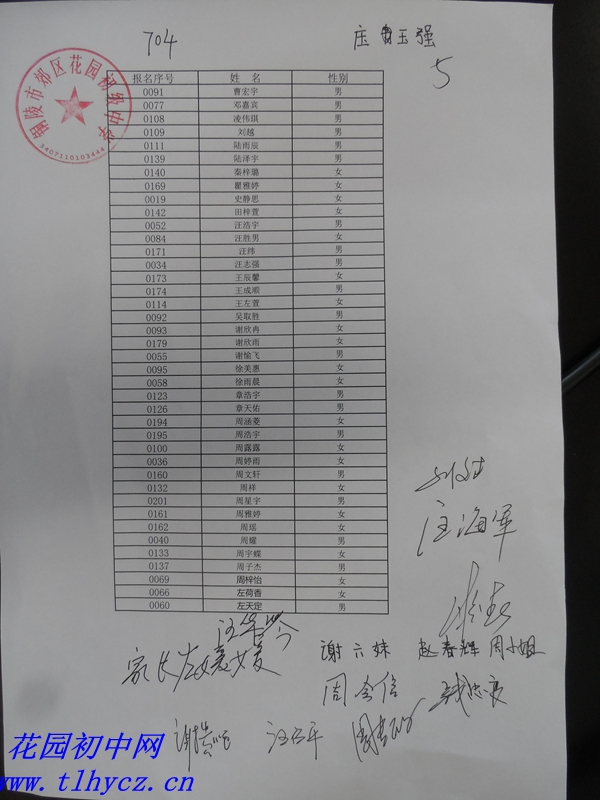 704
5
铜陵市郊区花园初级中学
3407110103444
报名序号 姓 名 性别
0091 曹宏宇 男
0077 邓嘉宾 男
0108 凌伟琪 男
0109 刘越 男
0111 陆雨辰 男
0139 陆泽宇 男
0140 秦梓璐 女
0169 瞿雅婷 女
0019 史静思 女
0142 田梓萱 女
0052 汪浩宇 男
0084 汪胜男 女
0171 汪纬 男
0034 汪志强 男
0173 王辰馨 女
0174 王成顺 男
0114 王左萱 女
0092 吴取胜 男
0093 谢欣冉 女
0179 谢欣雨 女
0055 谢愉飞 男
0095 徐美惠 女
0058 徐雨晨 女
0123 章浩宇 男
0126 章天佑 男
0194 周涵菱 女
0195 周浩宇 男
0100 周露露 女
0036 周婷雨 女
0160 周文轩 男
0132 周祥 女
0201 周星宇 男
0161 周雅婷 女
0162 周瑶 女
0040 周耀 男
0133 周宇蝶 女
0137 周子杰 男
0069 周梓怡 女
0066 左荷香 女
0060 左天定 男
汪海军
谢六妹 赵春辉 周小姐
家长
花园初中网
www.tlhycz.cn